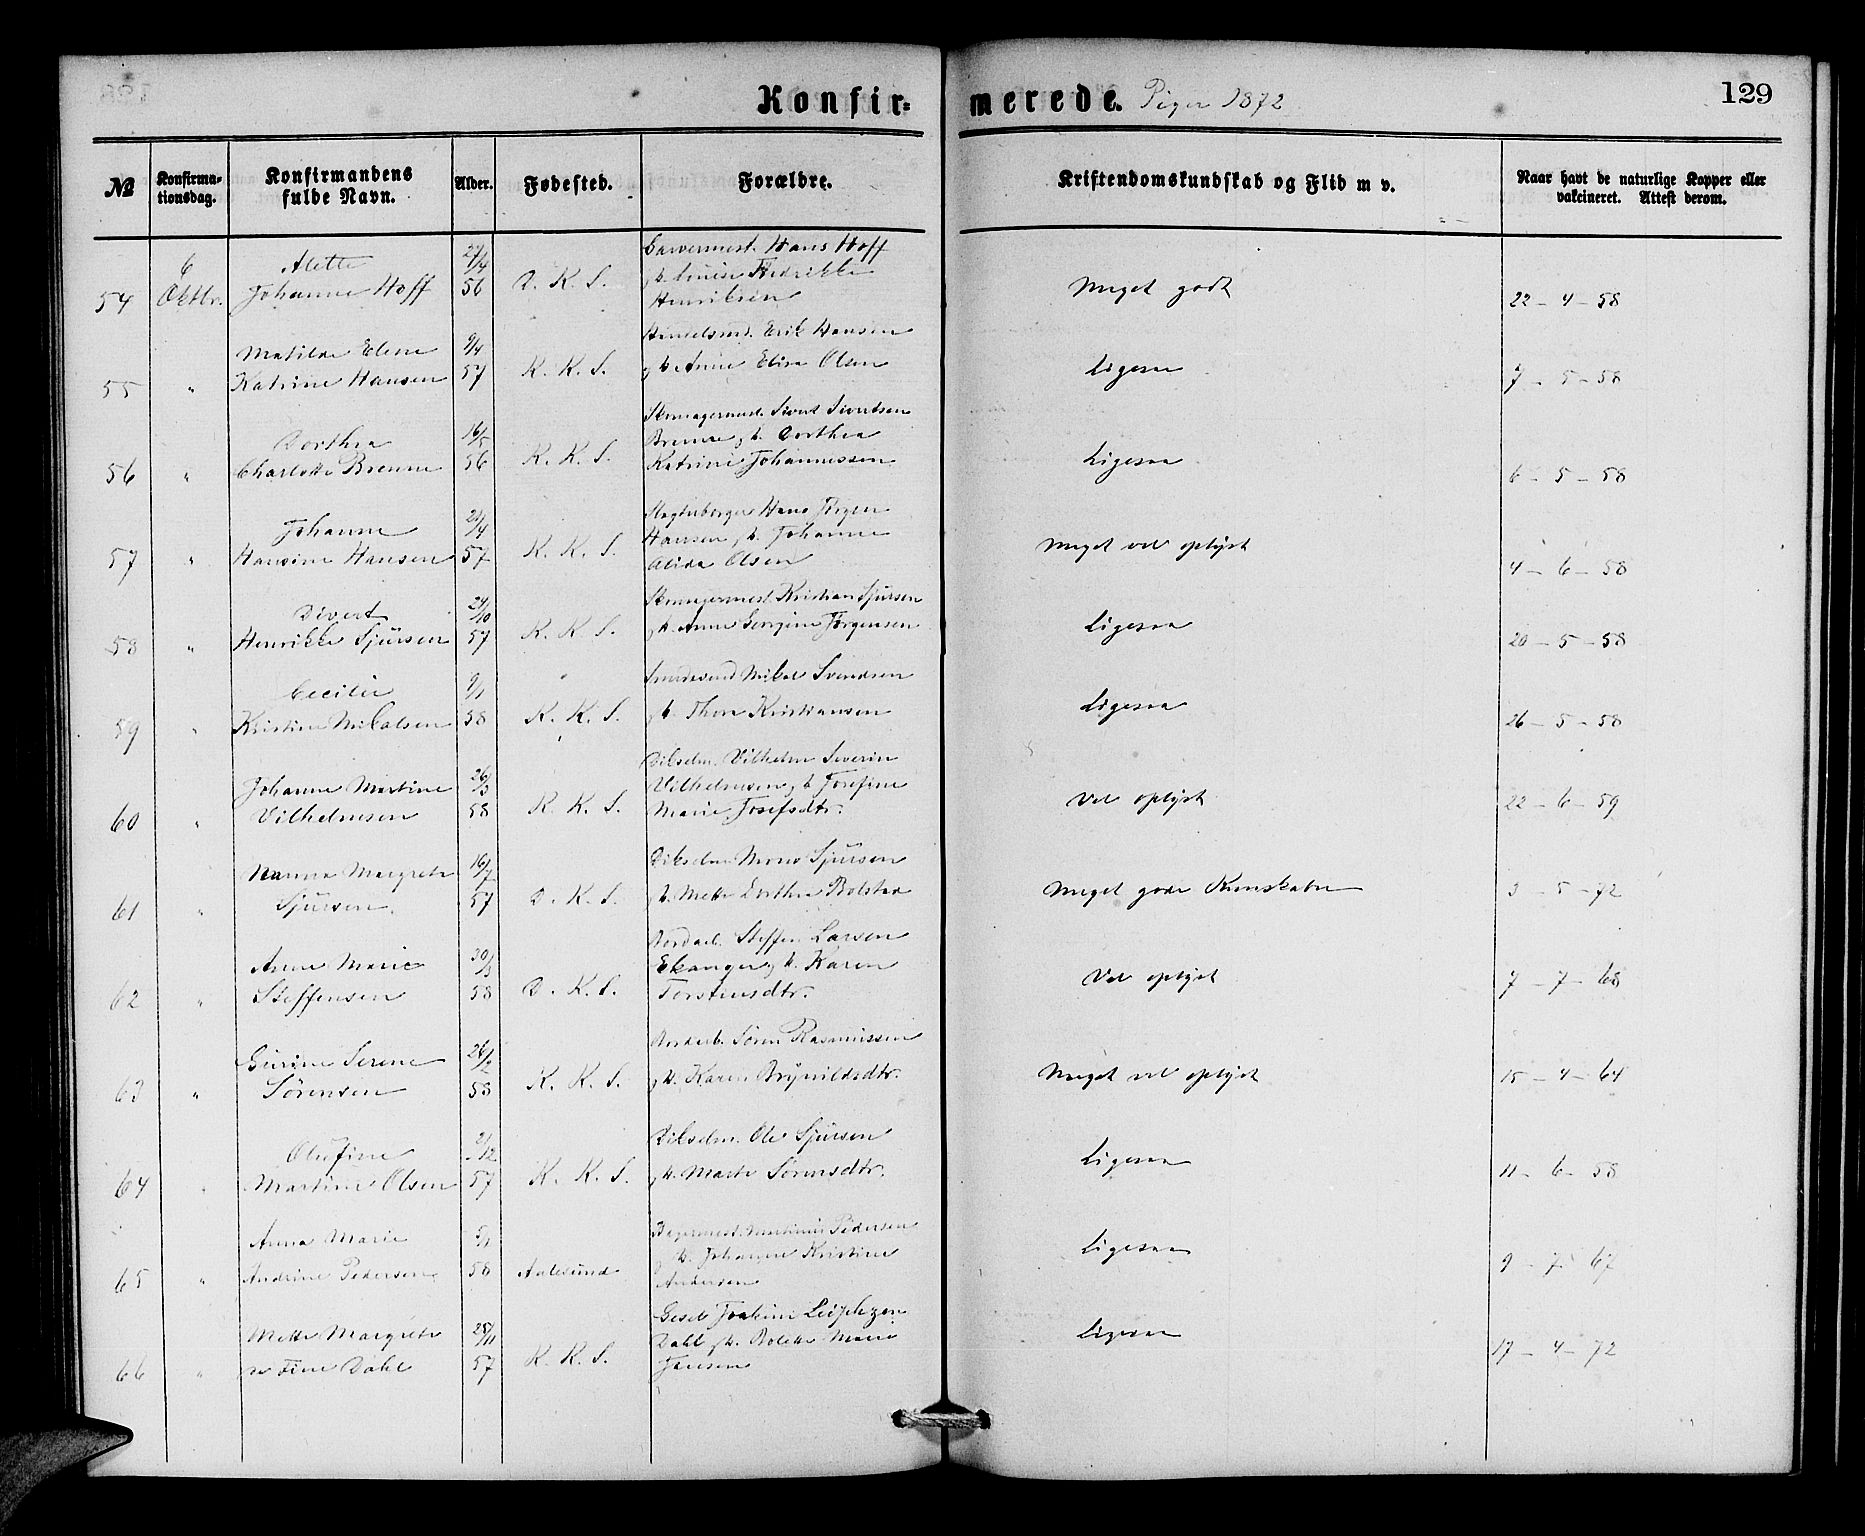 Konfir= merede. Piger 1872
129
№ Konfirma-tionsdag. Konfirmandens fulde Navn. Alder. Fødested. Forældre. Kristendomskundskab og Flid m v. Naar havt de naturlige Kopper eller vakcineret. Attest derom.
6 Alette 27/4 Hans Hoff
54 Oktbr. Johanne Hoff 56 D. K. S. Louise Fredrikke Meget godt 22 - 4 - 58
Henriksen
Matilde Elene 9/4 Handelsmd. Erik Hansen
55 " Katrine Hansen 57 K. K. S. Anne Elisa Olsen Ligesaa 7 - 5 - 58
Skomagermest. Sivert Sivertsen
Dorthea 16/5 Brenne, h. Dorthea
56 " Charlotte Brenne 56 K. K. S. Katrine Johannessen Ligesaa 6 - 5 - 58
Hans Jørgen
Johanne 21/4 Hansen, h. Johanne
57 " Hansine Hansen 57 K. K. S. Alida Olsen Meget vel oplyst 4 - 6 - 58
Sivert 24/10 Skomagermest. Kristian Sjursen
58 " Henrikke Sjursen 57 K. K. S. h. Anne Jørgensen Ligesaa 20 - 5 - 58
Cecilie 9/1 Mikal Svendsen
59 " Kristine Mikalsen 58 K. K. S. h. Thora Kristiansen Ligesaa 26 - 5 - 58
Vilhelm Severin
Johanne Martine 26/3 Vilhelmsen, h. Josefine
60 " Vilhelmsen 58 K. K. S. Marie Josefsdtr. Vel oplyst 22 - 6 - 59
Nanna Margrete 16/7 Mons Sjursen
61 " Sjursen 57 D. K. S. h. Mette Dorthea Bolstad Meget gode Kunskaber 3 - 5 - 72
Steffen Larsen
Anne Marie 30/3 Ekanger, h. Karen
62 " Steffensen 58 D. K. S. Torstensdtr. Vel oplyst 7 - 7 - 68
Serene 26/2 Søren Rasmussen
63 " Sørensen 58 K. K. S. h. Karen Brynildsdtr. Meget vel oplyst 15 - 4 - 64
Olufine 2/12 Ole Sjursen
64 " Martine Olsen 57 K. K. S. h. Marte Sørensdtr. Ligesaa 11 - 6 - 58
Anna Marie 5/1 Martinus Pedersen
h. Johanne Kristine
65 " Andrine Pedersen 58 Aalesund Andersen Ligesaa 9 - 7 - 67
Joakim
Mette Margrete 25/11 Dahl, h. Bolette Marie
66 " Dahl 57 K. K. S. Jansen Ligesaa 17 - 4 - 72